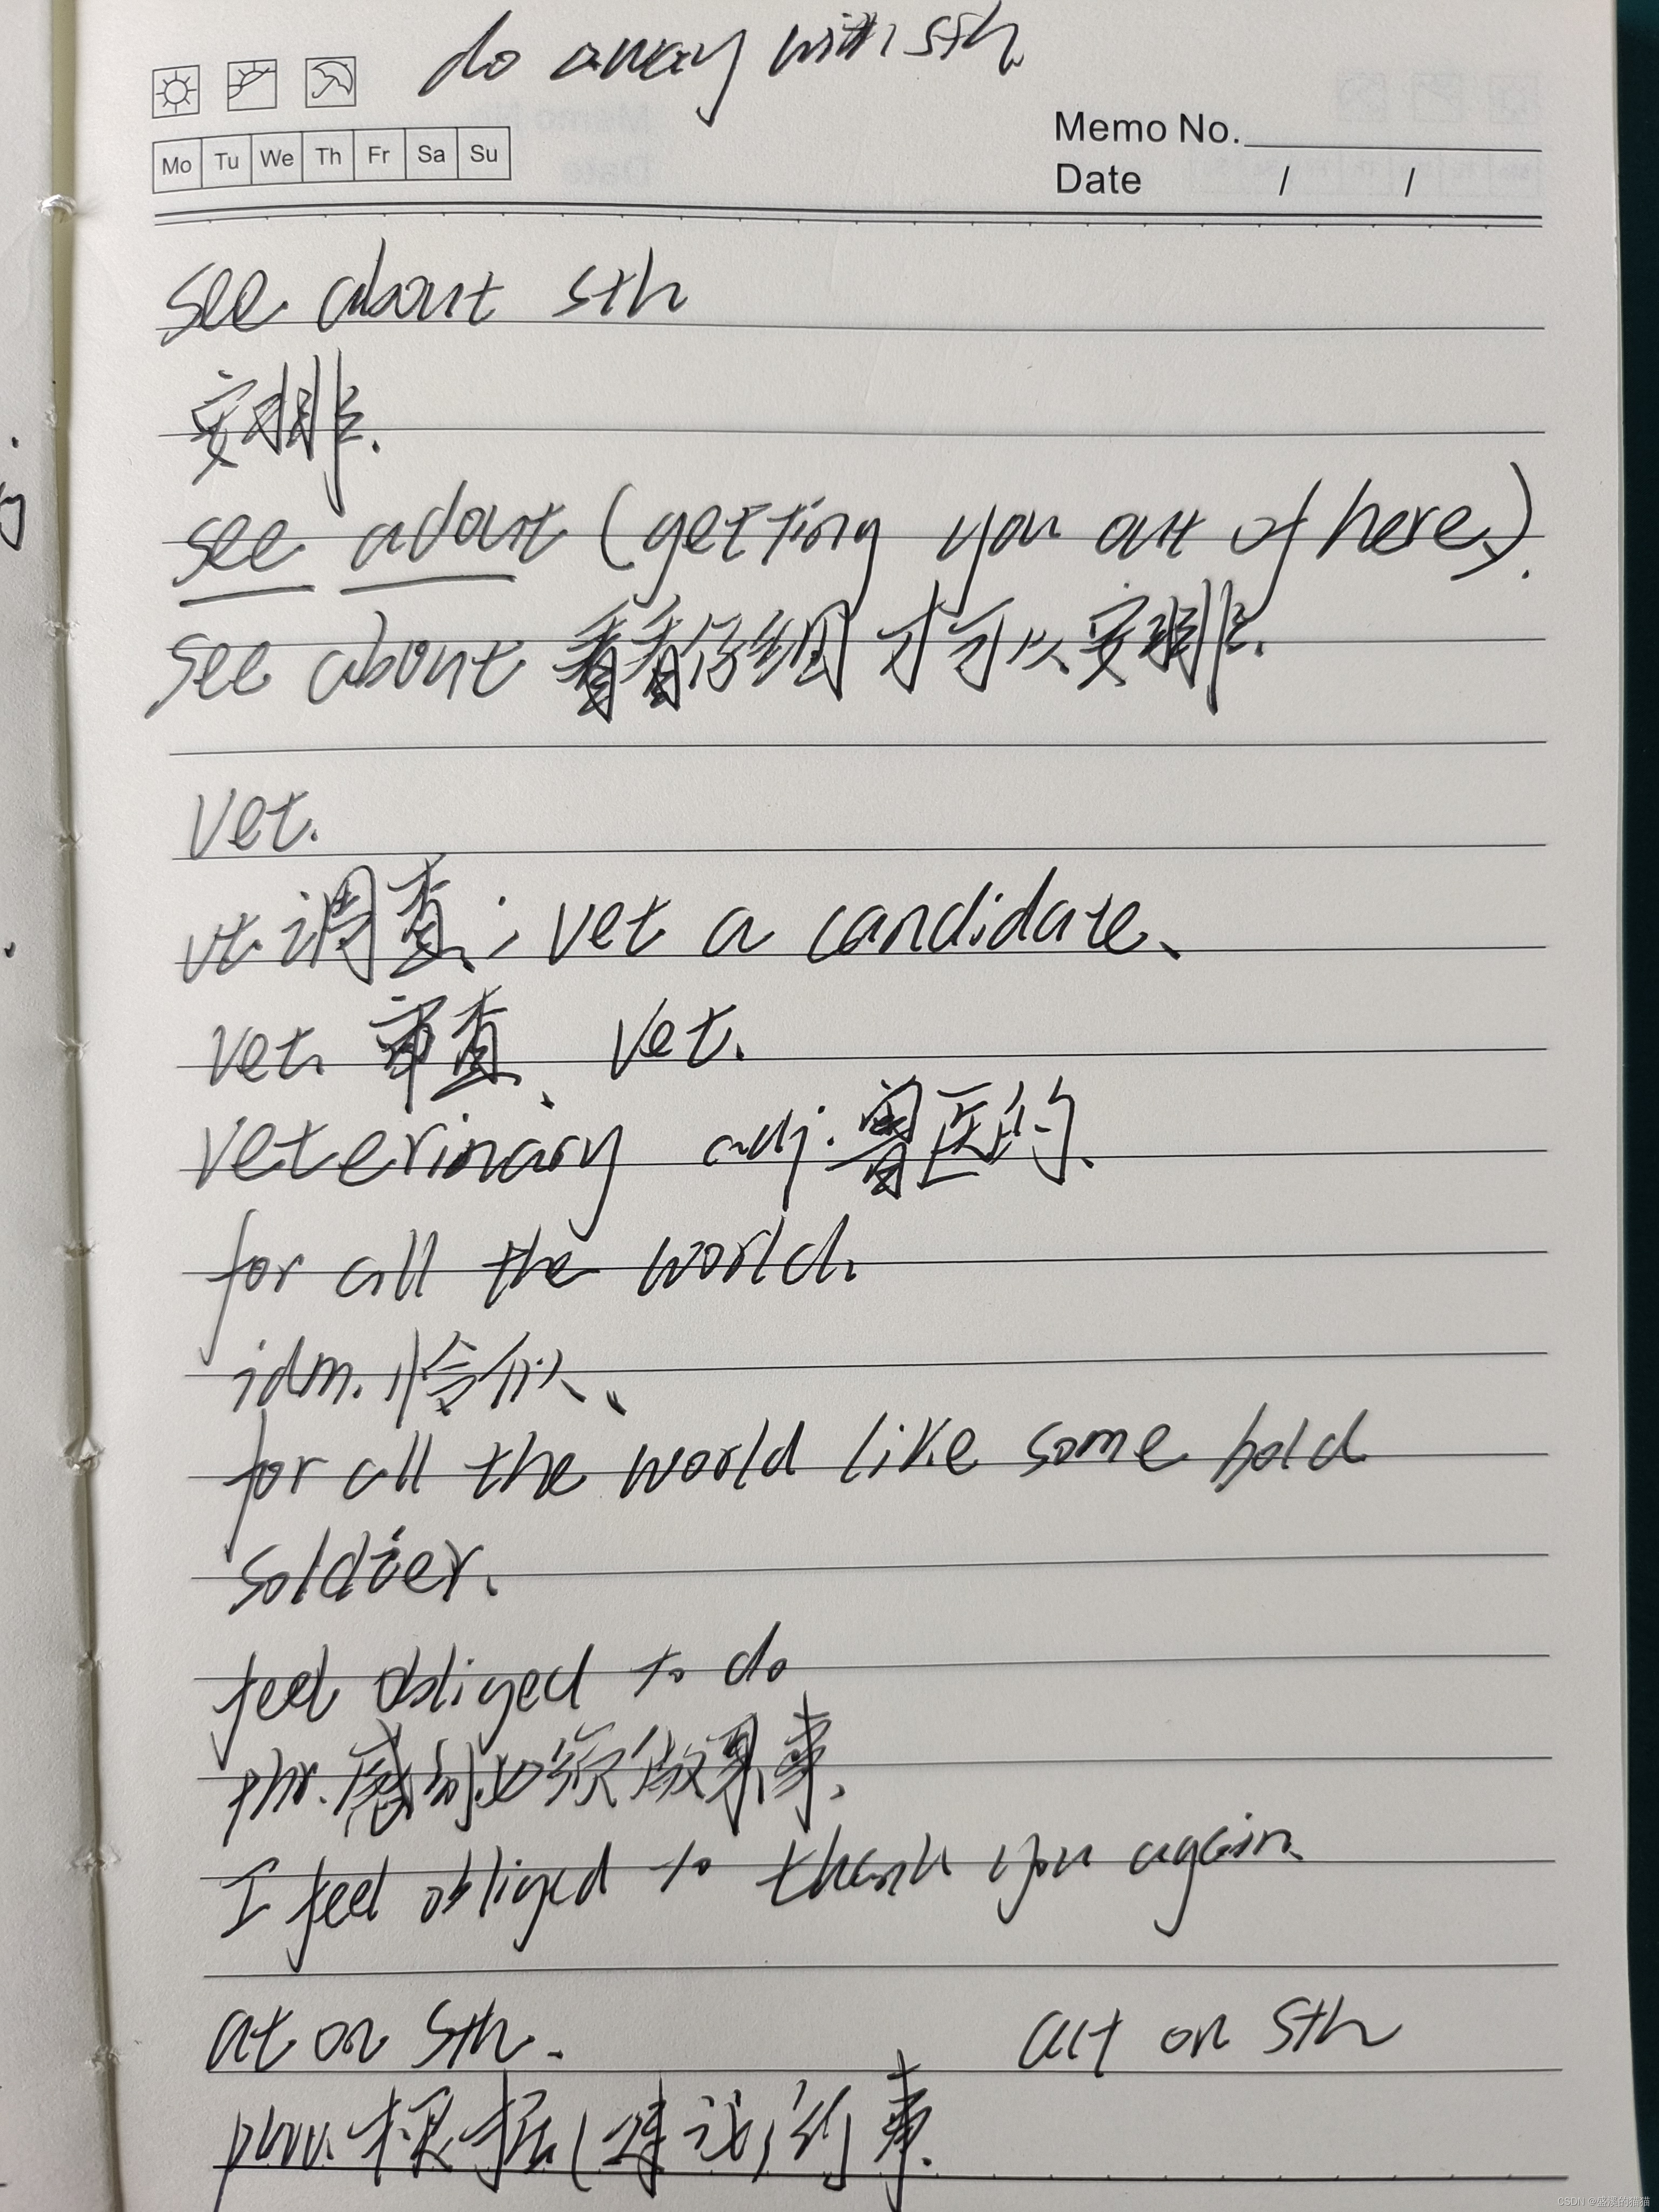 do away with sth
Memo No.
Mo Tu We Th Fr Sa Su
Date / /
see about sth
安排.
see about (getting you out of here).
see about 看看你细 才可以安排.
vet.
vt. 调查; vet a candidate.
vet. 审查. vet.
veterinary adj. 兽医的.
for all the world.
idm. 恰似.
for all the world like some bold
soldier.
feel obliged to do
phr. 感到必须做某事.
I feel obliged to thank you again.
at on sth. act on sth
根据(建议)的事.
CSDN